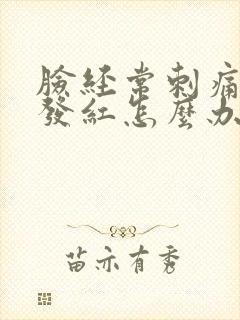 臉經常刺痛
發紅怎麼办
苗亦有秀